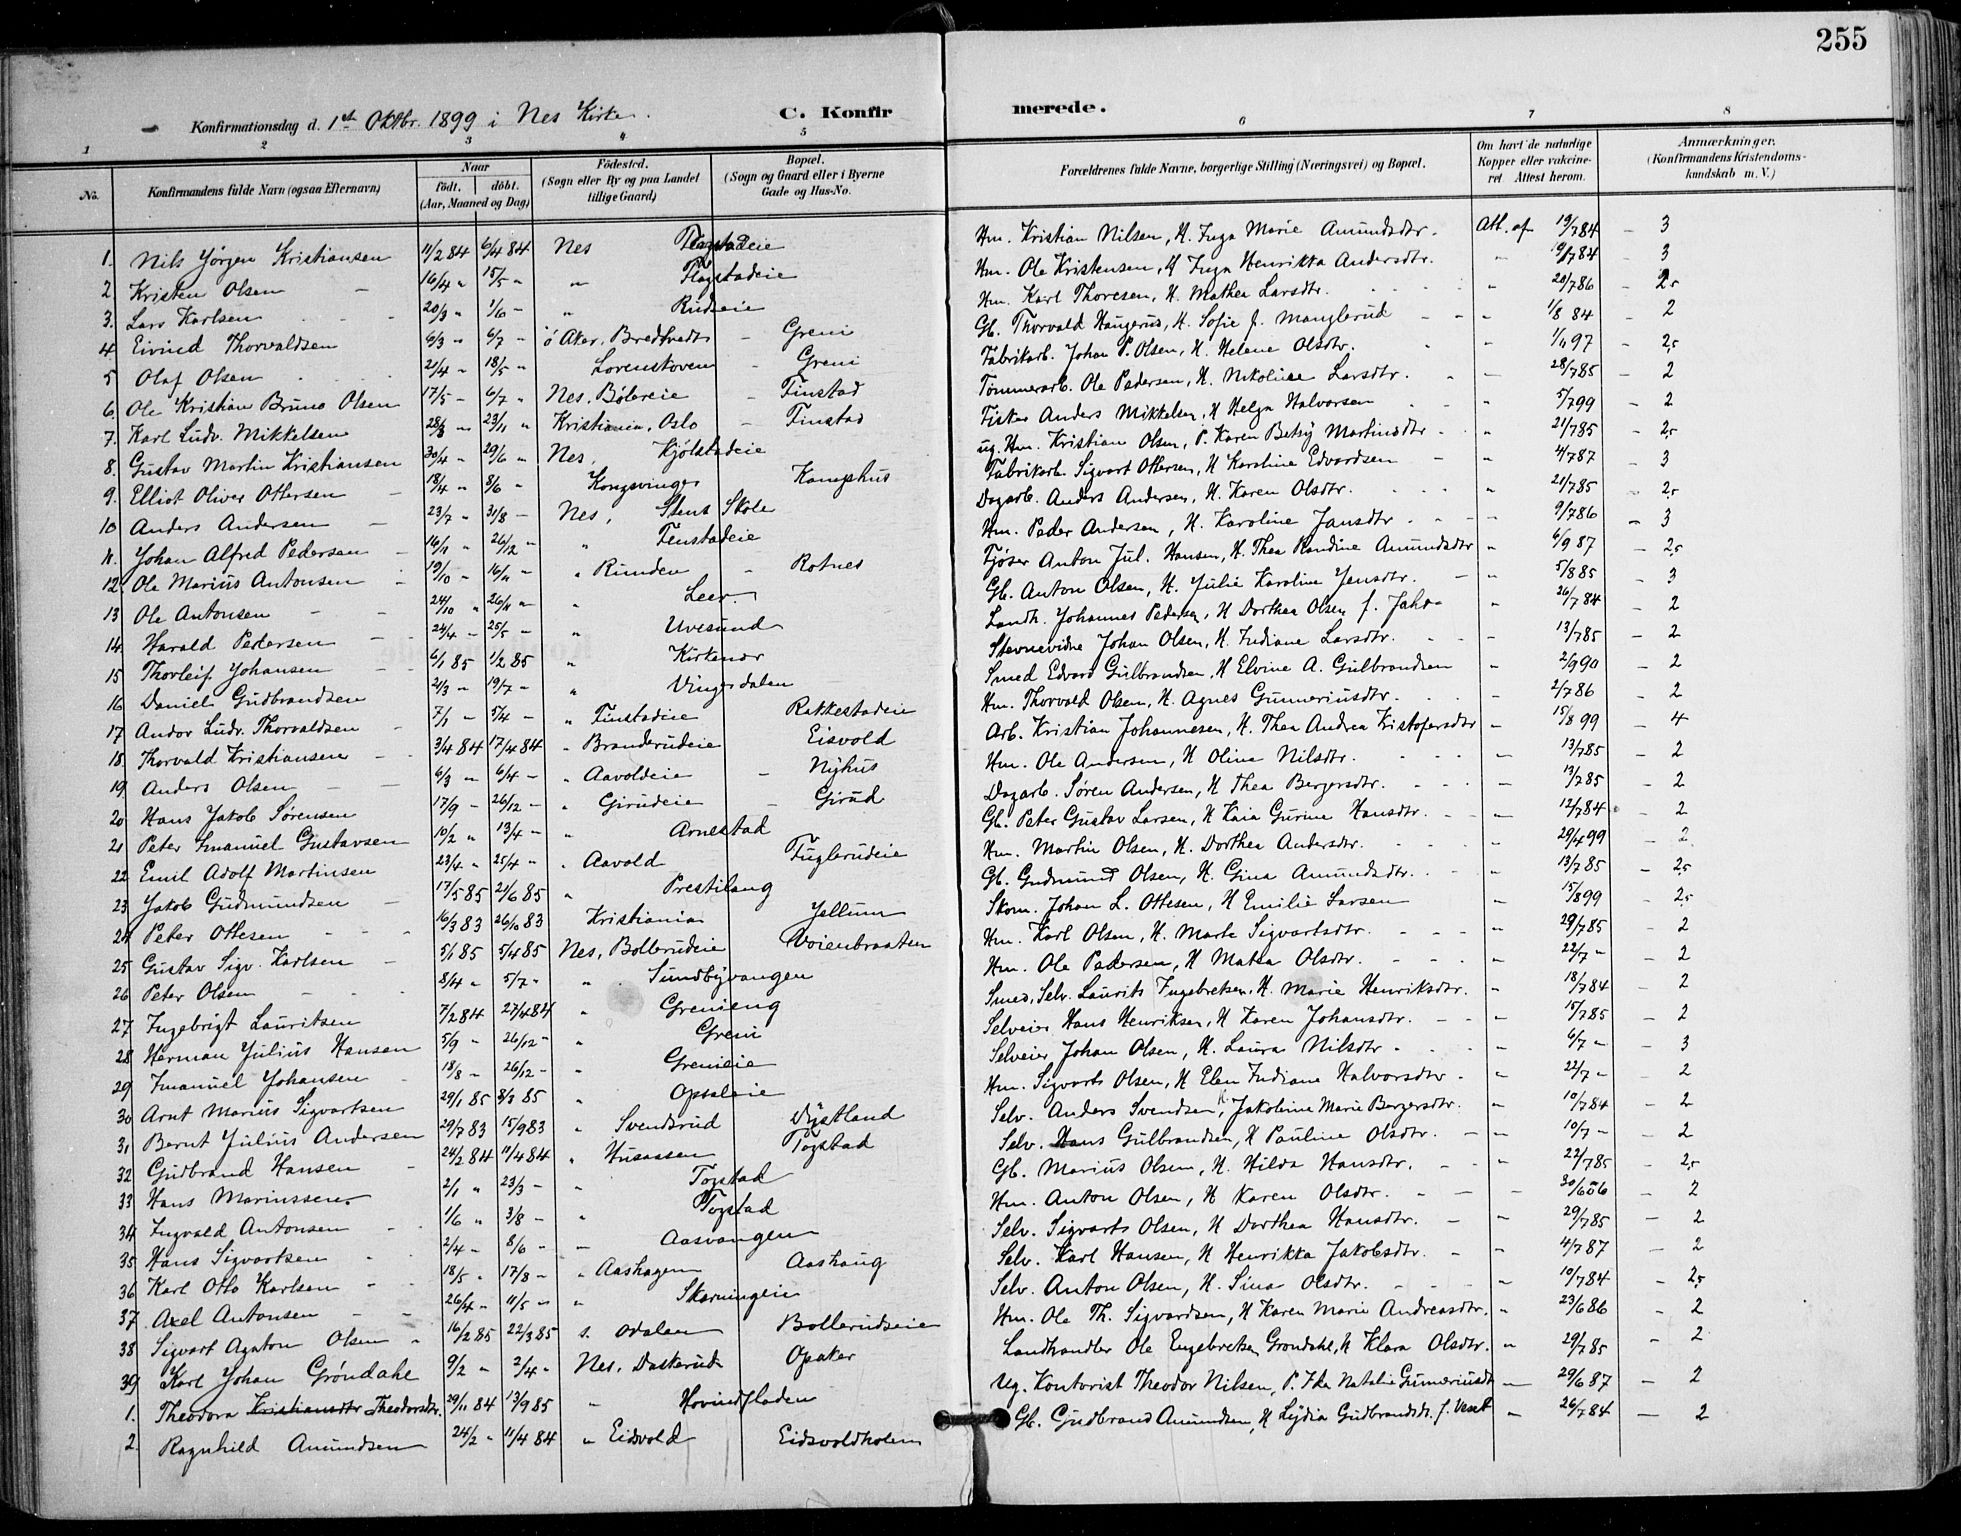 255
Konfirmationsdag d. 1st Oktbr. 1899 i Nes Kirke. C. Konfirmerede.
1 2 3 4 5 6 7 8
No. Konfirmandens fulde Navn (ogsaa Efternavn) Naar født. døbt. (Aar, Maaned og Dag) Fødested. (Sogn eller By og paa Landet tillige Gaard) Bopæl. (Sogn og Gaard eller i Byerne Gade og Hus-No. Forældrenes fulde Navne, borgerlige Stilling (Næringsvei) og Bopæl. Om havt de naturlige Kopper eller vakcineret Attest herom. Anmærkninger. (Konfirmandens Kristendomskundskab m. V.)
1. Nils Jørgen Kristiansen 11/2 84 6/4 84 Nes Flagstadeie Hm. Kristian Nilsen, H. Inga Marie Amundsdtr. Att. af 19/7 84 - 3
2. Kristen Olsen 16/4 " 15/5 " " Flagstadeie Hm. Ole Kristensen, H Inga Henrikka Andersdtr. " 19/7 84 - 3
3. Lars Karlsen 20/3 " 1/6 - " Rudeie Hm. Karl Thoresen, H. Mathea Larsdtr. " 20/7 86 - 2,5
4 Eivind Thorvaldsen 6/3 " 6/7 - ø Aker, Bredtvedt - Greni Gb. Thorvald Haugerud, H. Sofie f. Manglerud " 1/8 84 - 2
5 Olaf Olsen 21/4 " 18/5 " Lorenstoven - Greni Fabrikarb. Johan P. Olsen, H. Helene Olsdtr. " 1/11 97 - 2,5
6. Ole Kristian Bruno Olsen 17/5 - 6/7 " Nes, Bølereie - Finstad Tømmerarb. Ole Pedersen, H. Nikoline Larsdtr. - 28/7 85 - 2
7. Karl Ludv. Mikkelsen 28/3 " 23/11 " Kristiania, Oslo - Finstad Fisker Anders Mikkelsen, H Helga Halvorsen " 5/7 99 - 2
8. Gustav Martin Kristiansen 30/4 - 29/6 - Nes, Kjølstadeie ug. Hm. Kristian Olsen, P. Karen Betsy Martinsdtr - " 21/7 85 - 2,5
9. Elliot Oliver Ottersen 18/4 " 8/6 " Kongsvinger Kamphus Fabrikarb. Sigvart Ottersen, H Karoline Edvardsen - " 4/7 87 - 3
10 Anders Andersen 23/7 - 31/8 - Nes, Stent Skole Dagarb. Anders Andersen, H. Karen Olsdtr. " 21/7 85 - 2,5
11. Johan Alfred Pedersen 16/11 " 26/12 - " Finstadeie Hm. Peder Andersen, H. Karoline Jansdtr - 9/7 86 - 3
12. Ole Marius Antonsen 19/10 - 16/11 - " Runden - Rotnes Fjøser Anton Jul. Hansen, H. Thea Randine Amundsdtr " 6/9 87 - 2,5
13 Ole Antonsen 24/10 " 26/11 - " Leer Gb. Anton Olsen, H. Julie Karoline Jensdtr. - " 5/8 85 - 3
14. Harald Pedersen 24/4 - 25/5 - " Uvesund Landh. Johannes Pedersen, H Dorthea Olsen " 26/7 84 - 2
15 Thorleif Johansen 6/1 85 1/2 85 " Kirkenær Stevnevidne Johan Olsen, H. Indiane Larsdtr. - 13/7 85 - 2
16 Daniel Gudbrandsen 21/3 - 19/7 - " Vingerdalen Smed Edvard Gulbrandsen, H Elvine A. Gulbrandsen " 2/9 90 - 2
17 Andor Ludv. Thorvaldsen 7/1 - 5/4 - " Finstadeie Rakkestadeie Hm. Thorvald Olsen, H. Agnes Gunneriusdtr. - 2/7 86 - 2
18. Thorvald Kristiansen 3/4 84 17/4 84 " Branderudeie Eisvold Arb. Kristian Johannesen, H. Thea Andrea Kristofersdtr - 15/8 99 - 4
19. Anders Olsen 6/3 - 6/4 - " Aavoldeie - Nyhus Hm. Ole Andersen, H Oline Nilsdtr. - 13/7 85 - 2
20 Hans Jakob Sørensen 17/9 - 26/12 - " Girudeie - Girud Dagarb. Søren Andersen, H Thea Bergersdtr. - 13/7 85 - 2
21 Peter Imanuel Gustavsen 10/2 " 13/4 - " Arnestad Gb. Peter Gustav Larsen, H Kaia Gurine Hansdtr. - 12/7 84 - 2
22. Emil Adolf Martinsen 23/4 " 25/4 " " Aavold Fuglerudeie Hm. Martin Olsen, H. Dorthea Andersdtr. - 29/4 99 - 2
23 Jakob Gudmundsen 17/5 85 21/6 85 " Prestilang Gb. Gudmund Olsen, H. Gina Amundsdtr. - 13/7 85 - 2,5
24 Peter Ottesen 16/3 83 26/10 83 Kristiania Jellum Skom. Johan L. Ottesen, H Emilie Larsen - 15/8 99 - 2,5
25 Gustav Sigv. Karlsen 5/1 85 5/4 85 Nes, Bollerudeie Voienbraaten Hm. Karl Olsen, H. Marte Sigvartsdtr. - 29/7 85 - 2
26 Peter Olsen 8/4 " 5/7 " " Sundbyvangen Hm. Ole Pedersen, H Matea Olsdtr. - 22/7 - - 2
27 Ingebrigt Lauritsen 7/2 84 27/4 84 " Grenieng Smed, Selv. Laurits Ingebretsen, H. Marie Henriksdtr. - 18/7 84 - 2
28 Herman Julius Hansen 5/9 - 26/12 - " Greni Selveier Hans Henriksen, H Karen Johansdtr. - 15/7 85 - 2
29 Imanuel Johansen 18/8 - 26/12 - " Grenieie Selveier Johan Olsen, H. Laura Nilsdtr - 6/7 - - 3
30 Arnt Marius Sigvartsen 29/1 85 8/3 85 " Opsaleie Hm. Sigvarts Olsen, H Elen Indiane Halvorsdtr - " 22/7 - - 2
31 Bernt Julius Andersen 29/7 83 15/9 83 " Svendsrud Dystland Selv. Anders Svendsen, H. Jakobine Marie Bergersdtr. " 10/7 84 - 2
32 Gudbrand Hansen 24/2 84 11/4 84 " Husaasen Togstad Selv. Hans Gulbrandsen, H Pauline Olsdtr. - " 10/7 - - 2
33 Hans Mariussen 2/1 " 23/3 - " Togstad Gb. Marius Olsen, H. Hilda Hansdtr. - 22/7 85 - 2,5
34 Ingvald Antonsen 1/6 " 3/8 - " Togstad Hm. Anton Olsen, H Karen Olsdtr. - - 2
35 Hans Sigvartsen 2/4 - 8/6 - - Aasvangen Selv. Sigvarts Olsen, H Dorthea Hansdtr. - - 29/7 85 - 2
36 Karl Otto Karlsen 18/5 " 17/8 - " Aashagen Aashaug Selv. Karl Hansen, H Henrikka Jakobsdtr. - " 4/7 87 - 2
37 Axel Antonsen 26/4 - 11/5 - " Skarningeie Selv. Anton Olsen, H. Sina Olsdtr. - 10/7 84 - 2,5
38 Sigvart Agaton Olsen 16/2 85 22/3 85 s. Odalen Bollerudseie Hm. Ole Th. Sigvardsen, H Karen Marie Andreasdtr. " 23/6 86 - 2
39 Karl Johan Grøndahl 9/2 " 2/4 - Nes, Daskerud Opaker Landhandler Ole Engebretsen Grøndahl, H Klara Olsdtr. " 29/7 85 - 2
1. Theodora Kristiansdtr Theodorsdtr. 29/11 84 13/9 85 " Hovindfladen Ug. Kontorist Theodor Nilsen, P. Ida Natalie Gunneriusdtr - 29/6 87 - 2
2. Ragnhild Amundsen 24/2 " 11/4 84 " Eidsvold Eidsvoldholen Gb. Gudbrand Amundsen, H Lydia Gudbrandsdtr. f. Vestst - 26/7 84 - 2